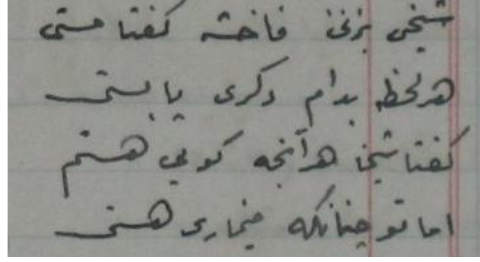 شیخی بزنی فاحشه گفتا مستی
هر لحظه بدام دگری پا بستی
گفتا شیخا هر آنچه گویی هستم
اما تو چنانکه مینمایی هستی